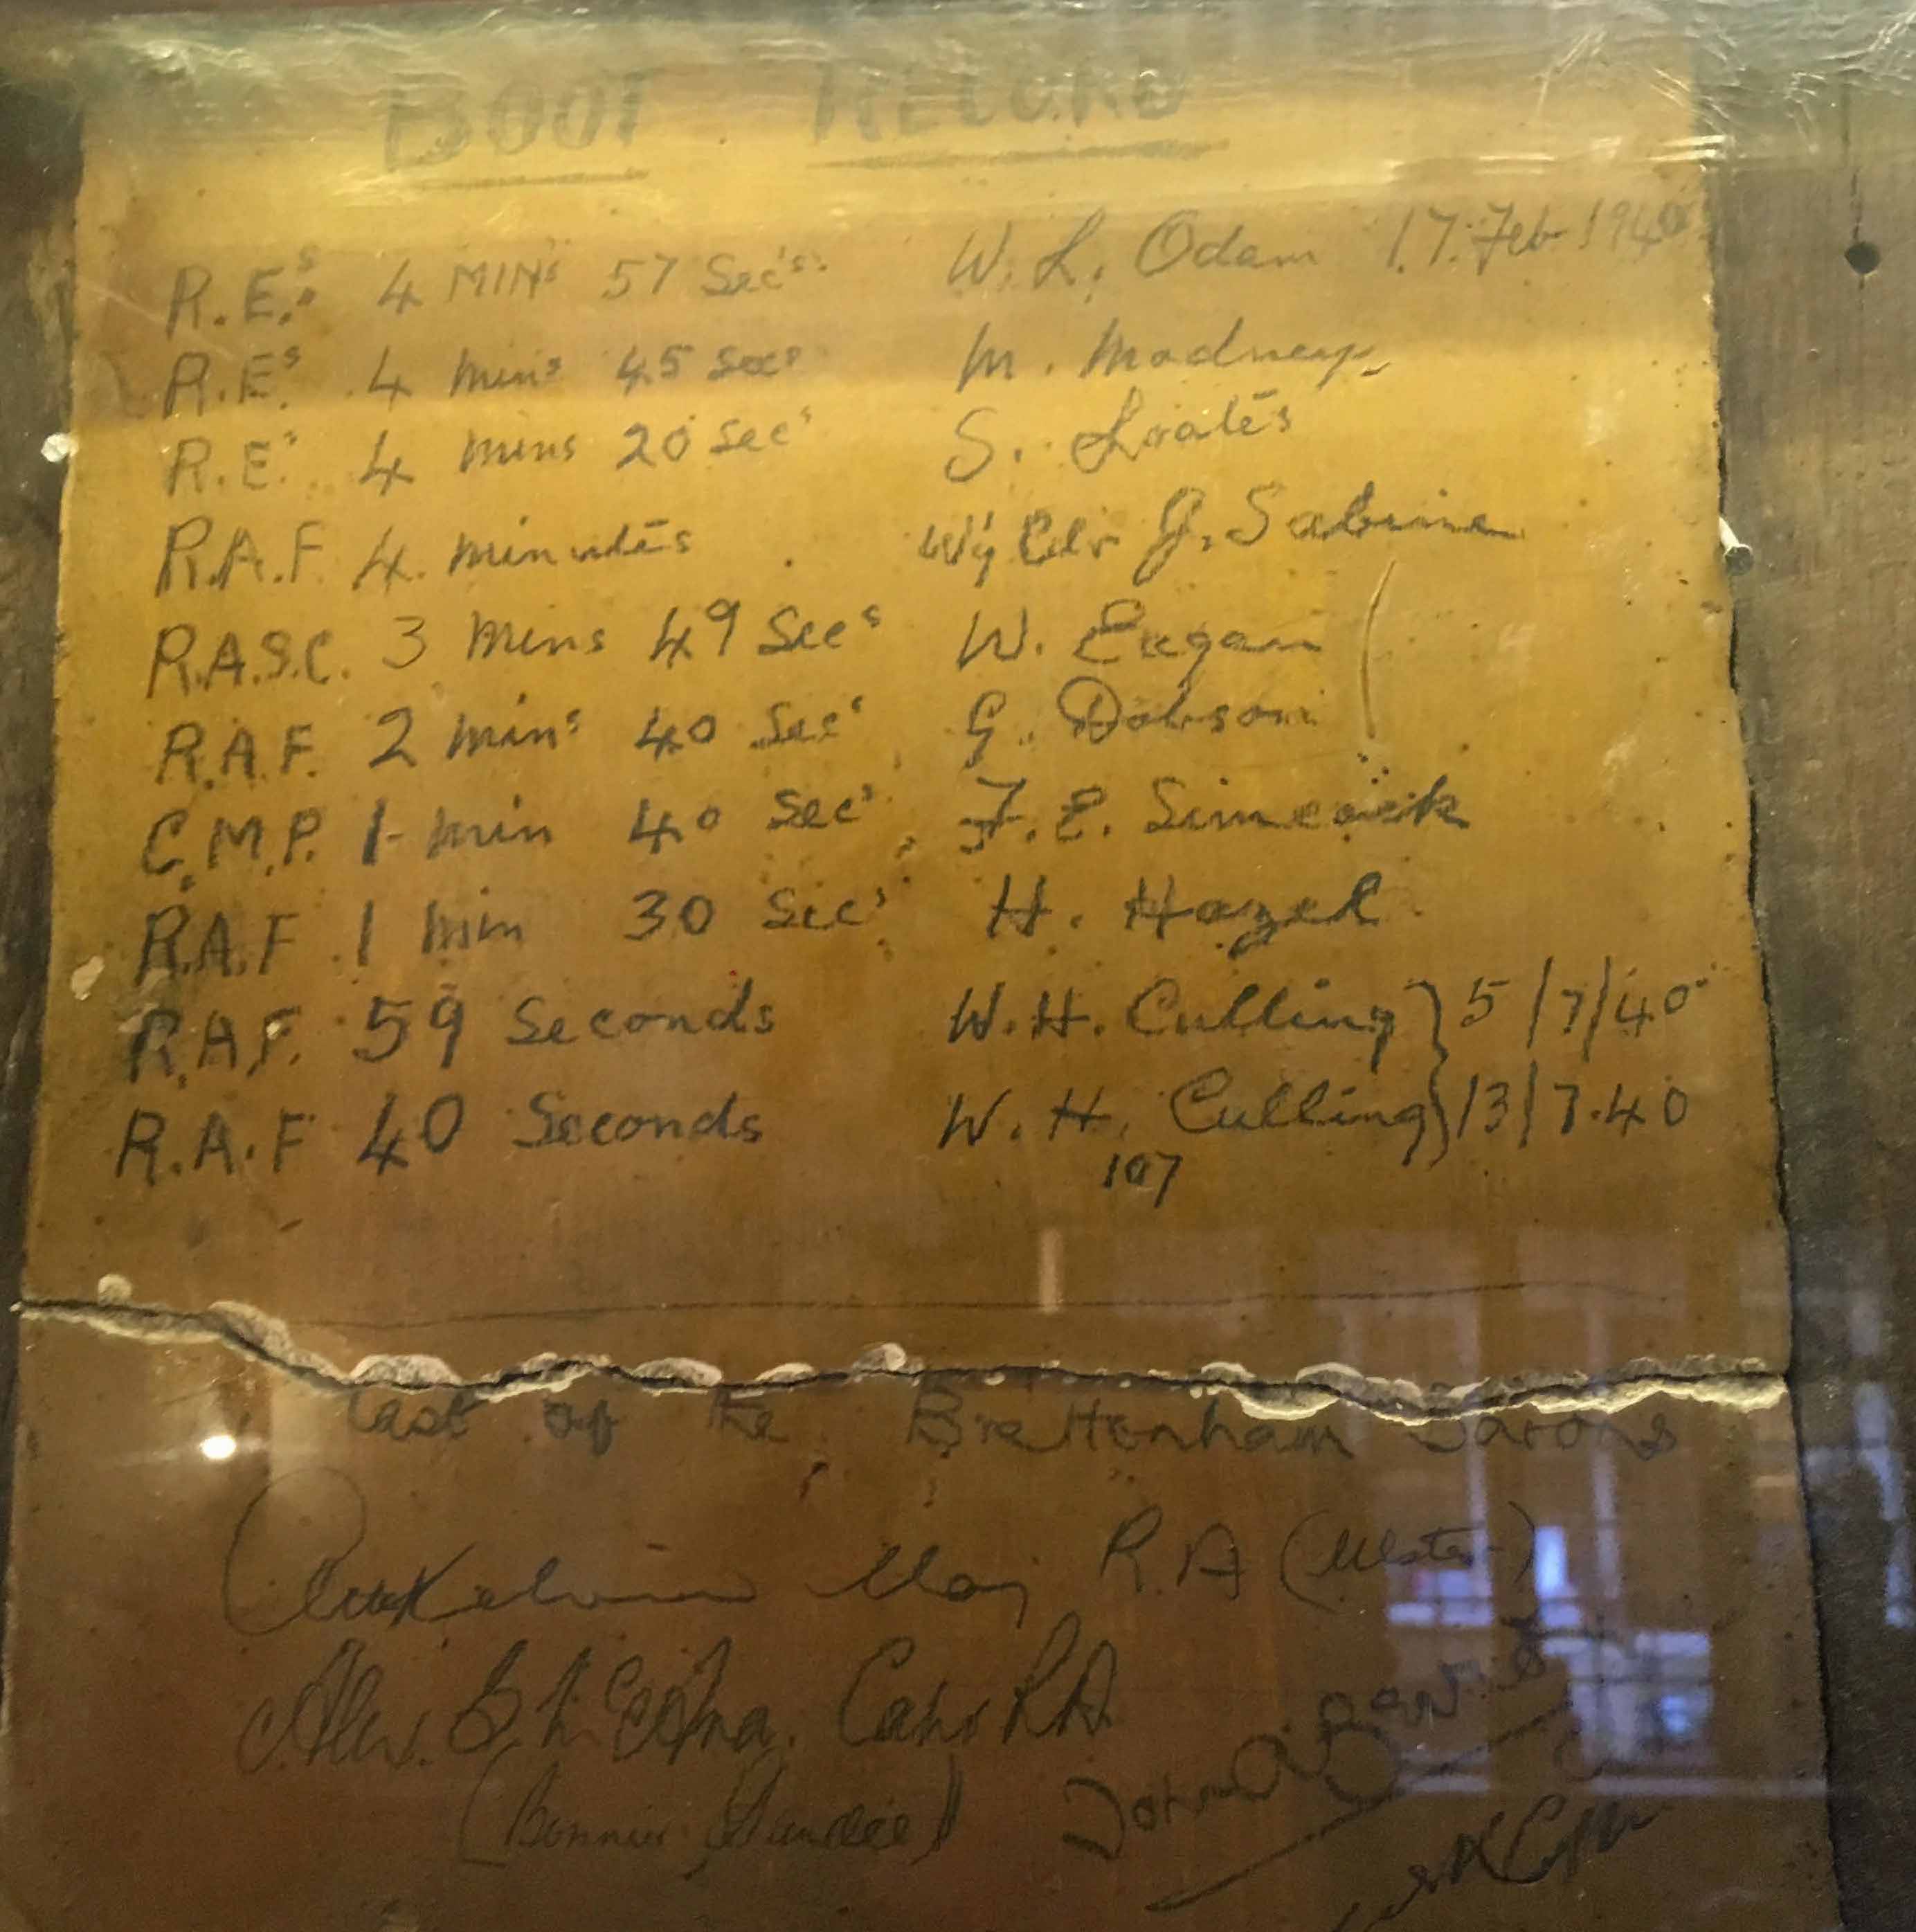 BOOT RECORD
R.E.s 4 MINs 57 Sec's. W. L. Odam 17. Feb 1940
R.E.s 4 mins 45 Secs M.
R.E.s 4 mins 20 Secs S. Loates
R.A.F. 4. minutes Wg Cdr J. Sabine
R.A.S.C. 3 mins 49 Secs W.
R.A.F. 2 mins 40 Secs G. Dobson
C.M.P. 1 min 40 Secs F. E. Simcock
R.A.F 1 min 30 Secs H. Hazel
R.A.F. 59 Seconds W. H. Culling } 5/7/40
R.A.F 40 Seconds W. H. Culling } 13/7.40
107
last of the Brettenham Barons
Maj R.A (Ulster)
Alex. B. Capt R.A.
(Bonnie Dundee)
John